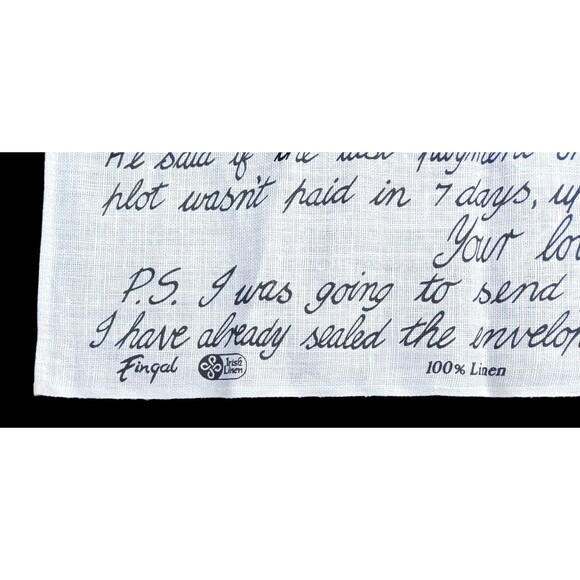 He said if the last payment on
plot wasn't paid in 7 days, up
Your lo
P.S. I was going to send
I have already sealed the envelop
Fingal Irish Linen 100% Linen